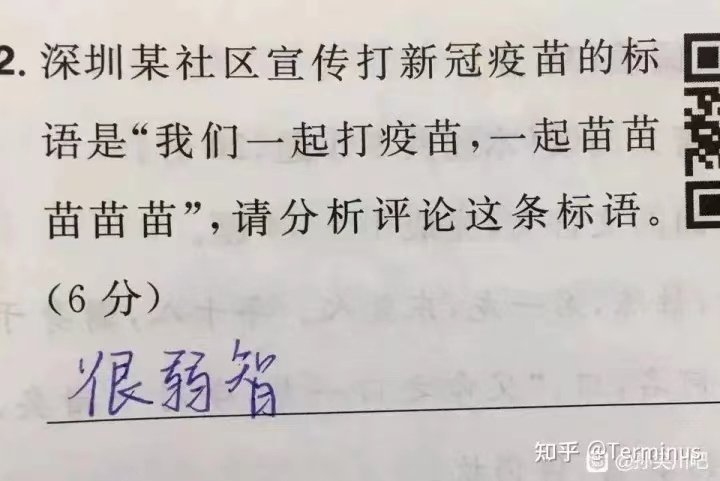 2. 深圳某社区宣传打新冠疫苗的标
语是“我们一起打疫苗,一起苗苗
苗苗苗”,请分析评论这条标语。
(6分)
很弱智
知乎 @Terminus
@孙笑川吧